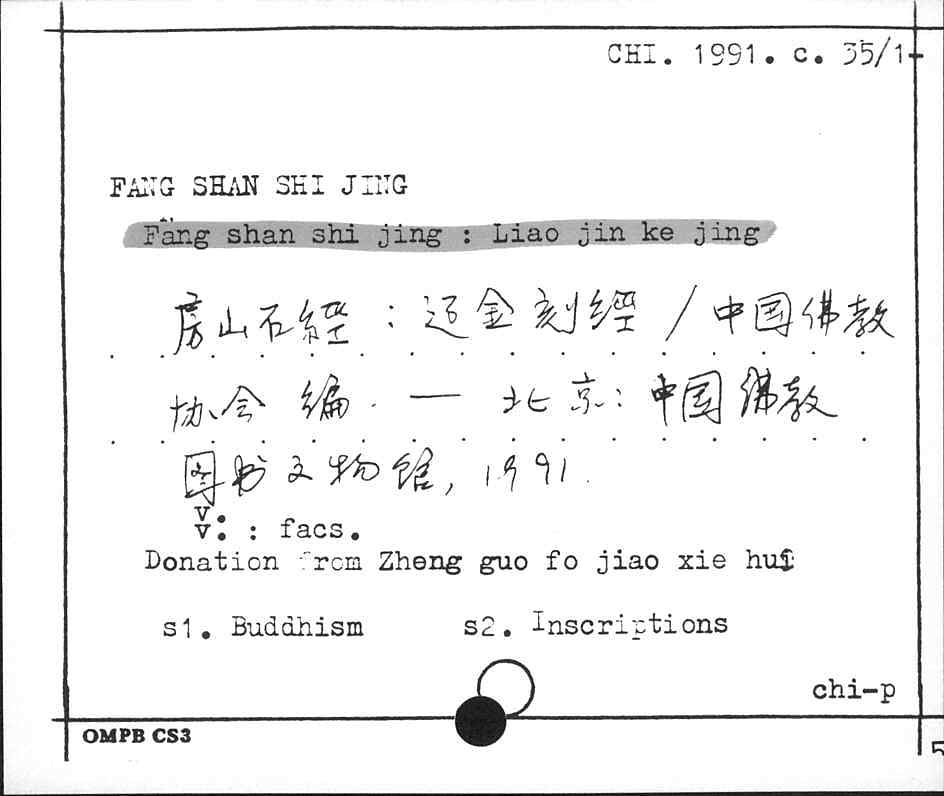 CHI. 1991. c. 35/1-
FANG SHAN SHI JING
Fang shan shi jing : Liao jin ke jing
房山石經 : 辽金刻經 / 中国佛教
协会 编. — 北京: 中国佛教
图书文物馆, 1991.
v.
v. : facs.
Donation from Zheng guo fo jiao xie hui
s1. Buddhism s2. Inscriptions
chi-p
OMPB CS3
5